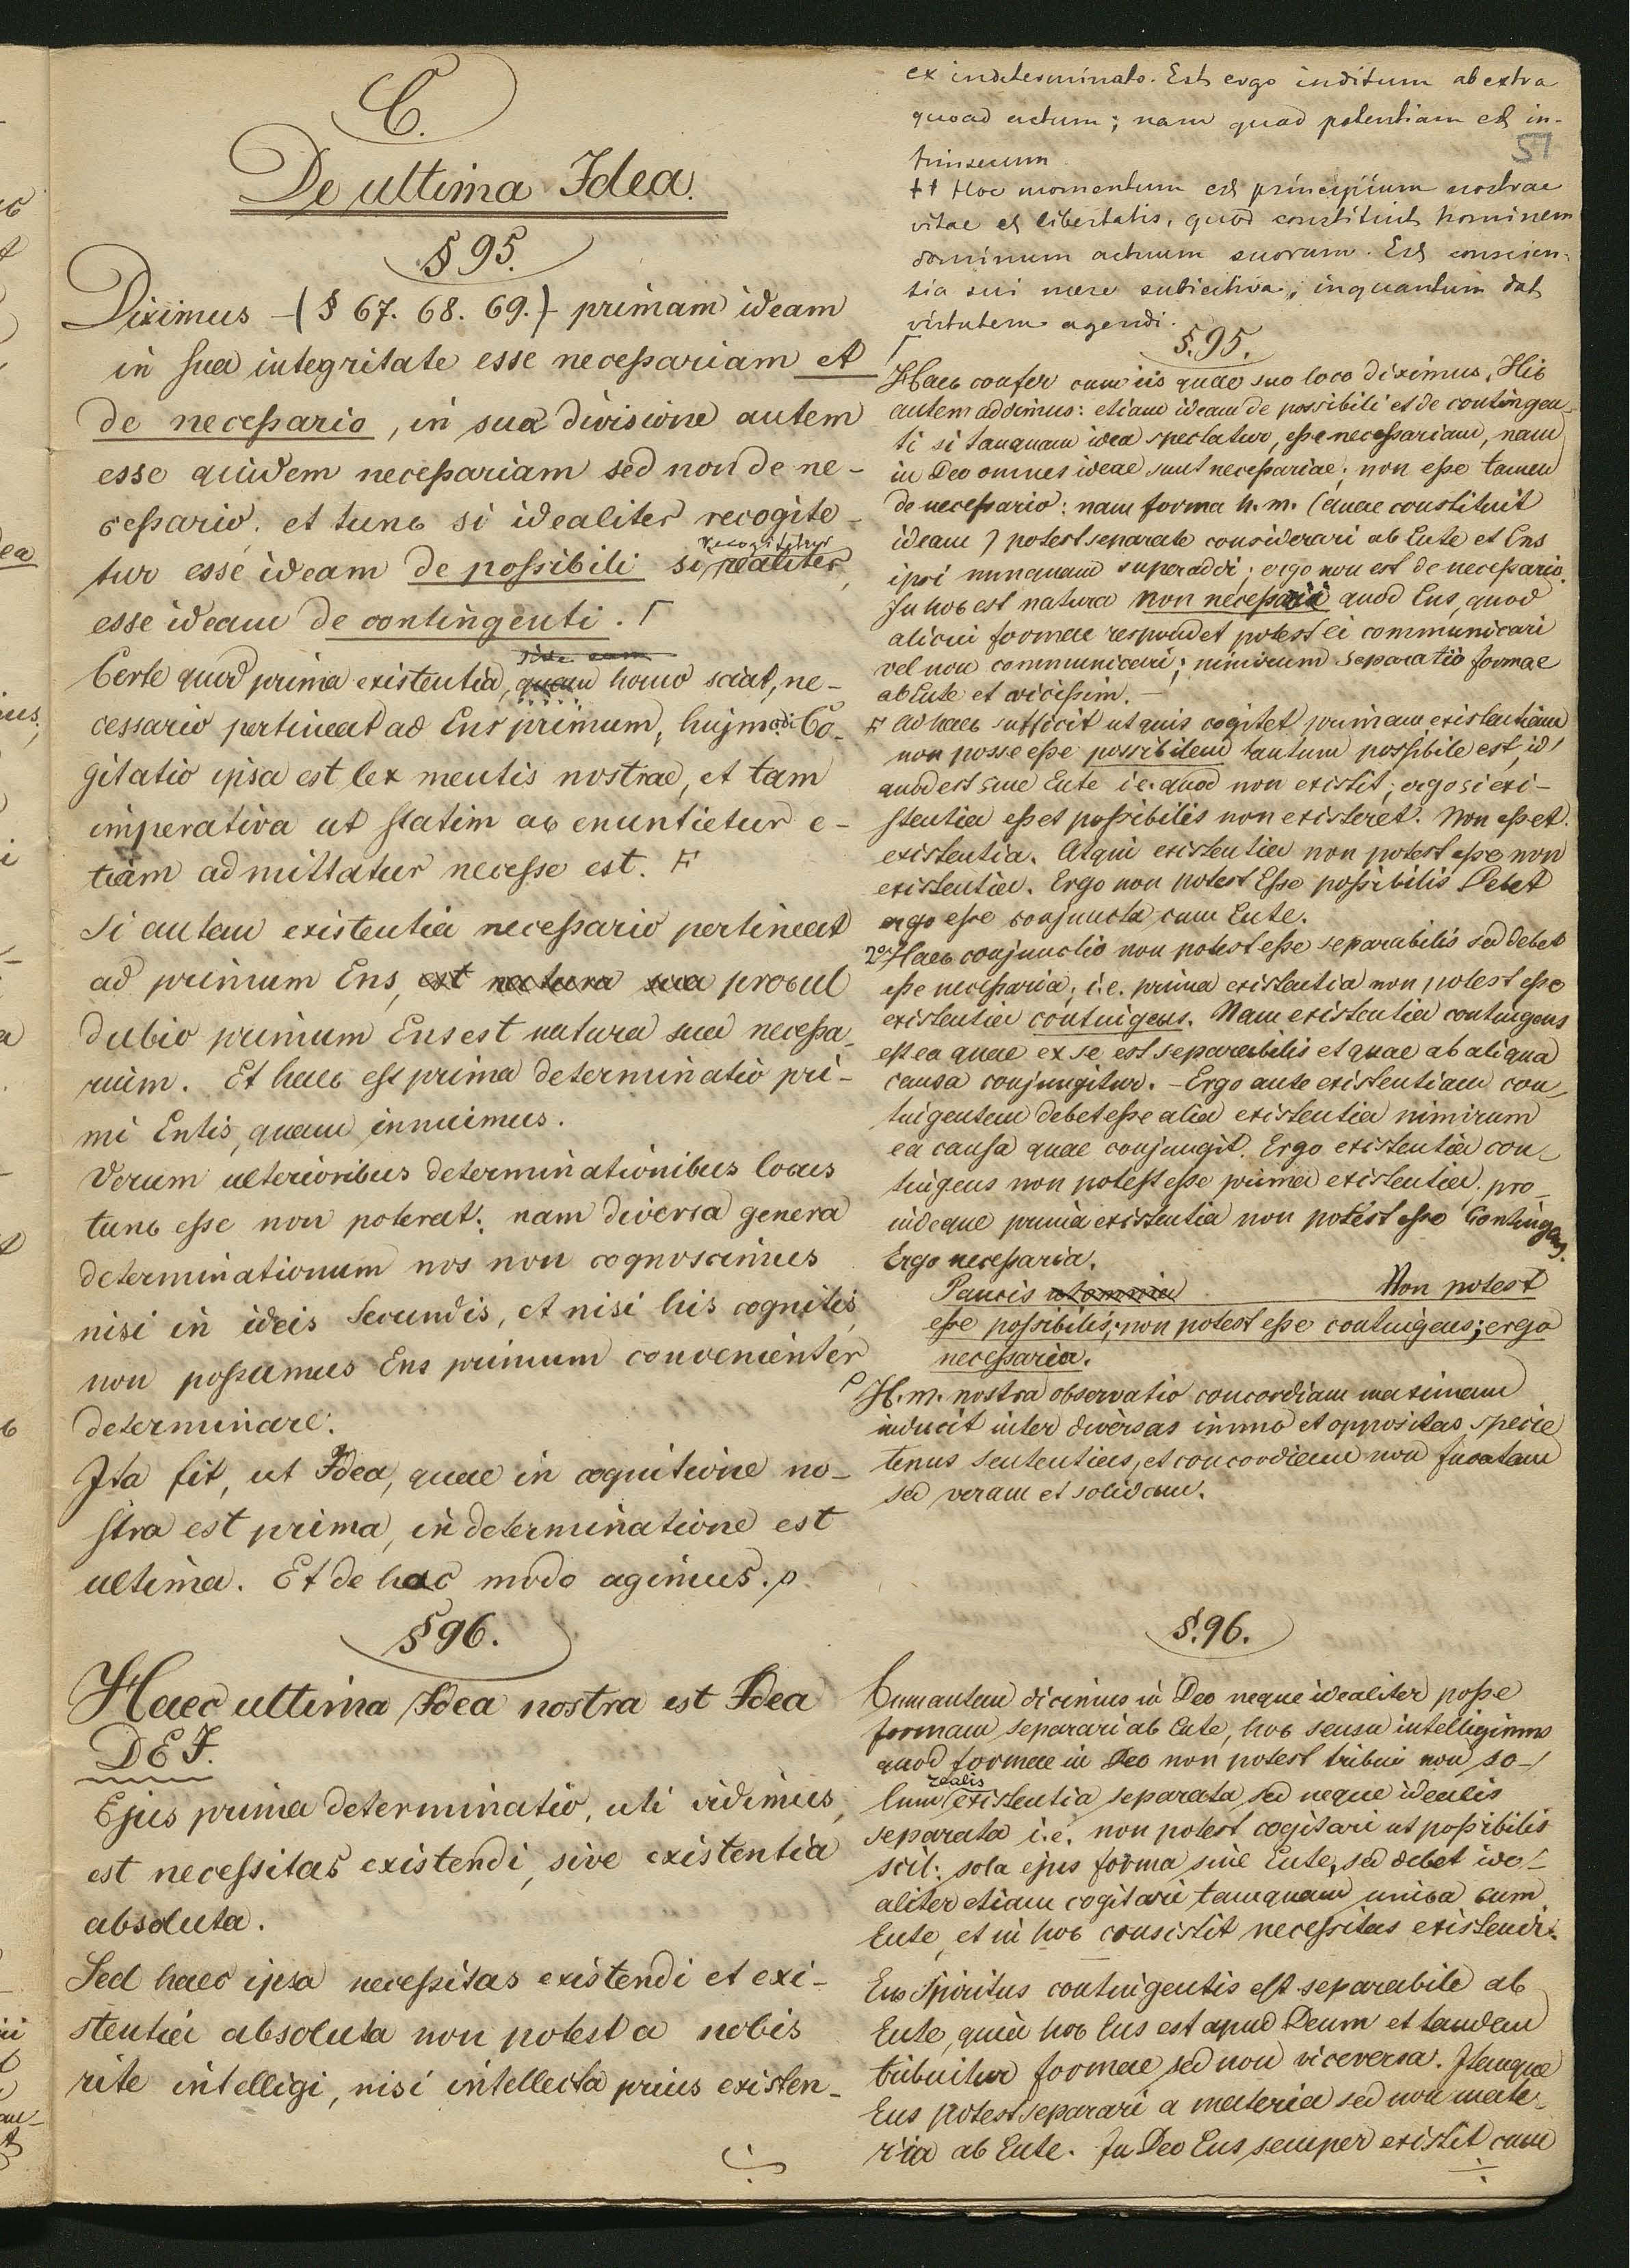 C.
De ultima Idea.
§ 95.
Diximus (§ 67. 68. 69.) primam ideam
in sua integritate esse necessariam et
de necessario, in sua divisione autem
esse quidem necessariam sed non de ne-
cessario. et tunc si idealiter recogite-
tur esse ideam de possibili si recogitetur realiter,
esse ideam de contingenti. Γ
Certe quod prima existentia, sive eam quam homo sciat, ne-
cessario pertineat ad Ens primum, hujmodi Co-
gitatio ipsa est lex mentis nostrae, et tam
imperativa ut statim ac enuntietur e-
tiam admittatur necesse est. F
Si autem existentia necessario pertineat
ad primum Ens, est natura sua procul
dubio primum Ens est natura sua necessa-
rium. Et haec est prima determinatio pri-
mi Entis, quam innuimus.
Verum ulterioribus determinationibus locus
tunc esse non poterat: nam diversa genera
determinationum nos non cognoscimus
nisi in ideis secundis, et nisi his cognitis,
non possumus Ens primum convenienter
determinare.
Ita fit, ut Idea, quae in cognitione no-
stra est prima, in determinatione est
ultima. Et de hac modo agimus. ρ
§ 96.
Haec ultima Idea nostra est Idea
DEI.
Ejus prima determinatio, uti vidimus,
est necessitas existendi, sive existentia
absoluta.
Sed haec ipsa necessitas existendi et exi-
stentia absoluta non potest a nobis
rite intelligi, nisi intellecta prius existen-
ex indeterminato. Est ergo inditum ab extra
quoad actum; nam quad potentiam est in-
trinsecum
51
†† Hoc momentum est principium nostrae
vitae et libertatis, quod constituit hominem
dominum actuum suorum. Est conscien-
tia sui mere subiectiva, inquantum dat
virtutem agendi.
§. 95.
Γ
Haec confer cum iis quae suo loco diximus. Hic
autem addimus: etiam ideam de possibili et de contingen-
ti si tanquam idea spectatur, esse necessariam, nam
in Deo omnes ideae sunt necessariae; non esse tamen
de necessario: nam forma h. m. (quae constituit
ideam) potest separate considerari ab Ente et Ens
ipsi nunquam superaddi; ergo non est de necessario.
In hoc est natura non necessarii quod Ens, quod
alicui formae respondet potest ei communicari
vel non communicari; nimirum separatio formae
ab Ente et vicissim. —
F ad haec sufficit ut quis cogitet primam existentiam
non posse esse possibilem tantum possibile est, id
quod est sine Ente i.e. quod non existit; ergo si exi-
stentia esset possibilis non existeret. Non esset
existentia. Atqui existentia non potest esse non
existentia. Ergo non potest Esse possibilis Debet
ergo esse conjuncta cum Ente.
2º Haec conjunctio non potest esse separabilis sed debet
esse necessaria; i.e. prima existentia non potest esse
existentia contingens. Nam existentia contingens
est ea quae ex se est separabilis et quae ab aliqua
causa conjungitur. - Ergo ante existentiam con-
tingentem debet esse alia existentia nimirum
ea causa quae conjungit. Ergo existentia con-
tingens non potest esse prima existentia. pro-
indeque prima existentia non potest esse Contingens.
Ergo necessaria.
Paucis Non potest
esse possibilis; non potest esse contingens; ergo
necessaria.
ρ H. m. nostra observatio concordiam maximam
inducit inter diversas immo et oppositas specie
tenus sententias, et concordiam non fucatam
sed veram et solidam.
§. 96.
Cum autem dicimus in Deo neque idealiter posse
formam separari ab Ente, hoc sensu intelligimus
quod formae in Deo non potest tribui non so-
lum realis existentia separata sed neque idealis
separata i.e. non potest cogitari ut possibilis
scil: sola ejus forma sine Ente, sed debet ide-
aliter etiam cogitari tamquam unica cum
Ente, et in hoc consistit necessitas existendi.
Ens Spiritus contingentis est separabile ab
Ente, quia hoc Ens est apud Deum et tandem
tribuitur formae sed non viceversa. Itaque
Ens potest separari a materia sed non mate-
ria ab Ente. In Deo Ens semper existit cum